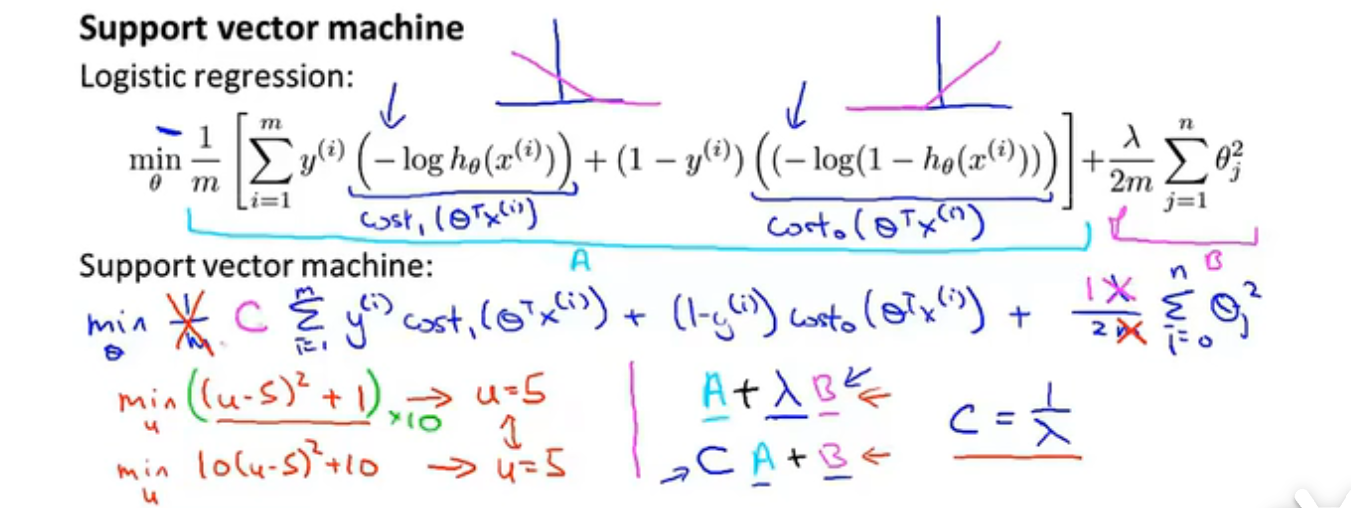 Support vector machine
Logistic regression:
min_θ 1/m [ Σ_{i=1}^{m} y^{(i)} (− log h_θ(x^{(i)})) + (1 − y^{(i)}) ((− log(1 − h_θ(x^{(i)}))) ] + λ/2m Σ_{j=1}^{n} θ_j^2
cost_1(θ^T x^{(i)}) cost_0(θ^T x^{(i)})
A B
Support vector machine:
min_θ 1/m C Σ_{i=1}^{m} y^{(i)} cost_1(θ^T x^{(i)}) + (1-y^{(i)}) cost_0(θ^T x^{(i)}) + 1 λ/2 m Σ_{i=0}^{n} θ_j^2
min_u ((u-5)^2 + 1) ×10 → u=5 A + λ B ←
↕ C = 1/λ
min_u 10(u-5)^2+10 → u=5 → C A + B ←